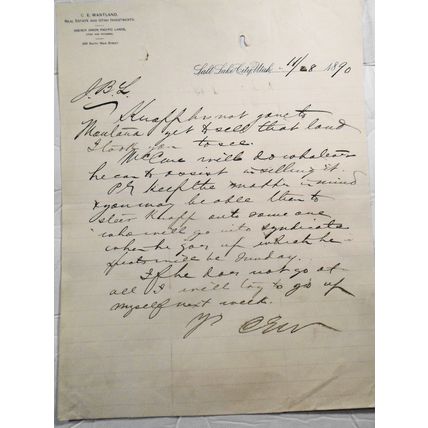 C. E. WANTLAND,
REAL ESTATE AND OTHER INVESTMENTS.
AGENCY UNION PACIFIC LANDS,
235 SOUTH MAIN STREET
Salt Lake City, Utah, 11/28 1890
J.B.L.
Knapp has not gone to
Montana yet to sell that land
I took you to see.
McCune will do whatever
he can to assist in selling it.
Pls keep the matter in mind
& you may be able then to
steer Knapp onto some one
who will go into syndicate
when he goes up which he
will be Sunday.
If he does not go at
all I will try to go up
myself next week.
Yr CEW